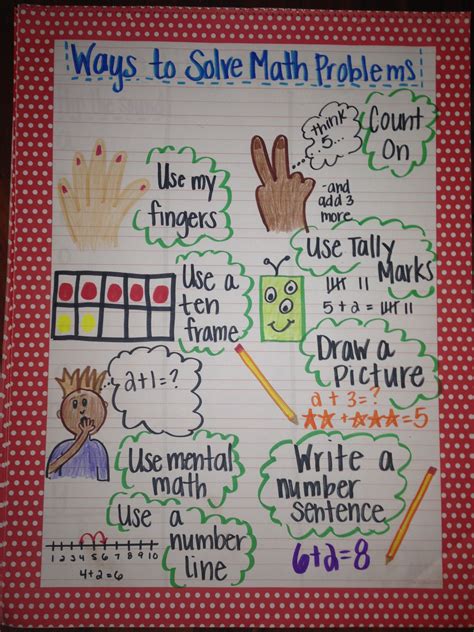 Ways to Solve Math Problems
think
5...
Count
On
Use my
fingers
-and
add 3
more
Use Tally
Marks
5+2=
Use a
ten
frame
Draw a
Picture
2+3=?
=5
2+1=?
Use mental
math
Write a
number
sentence
6+2=8
Use a
number
line
1 2 3 4 5 6 7 8 9 10
4+2=6